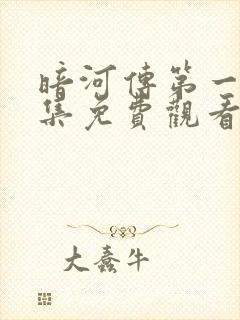 暗河傳第一
集免費觀看
大蠢牛